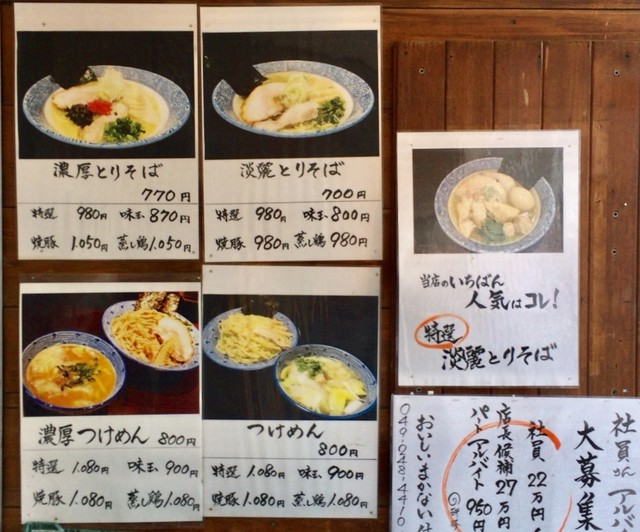 濃厚とりそば
770円
特選 980円 味玉 870円
焼豚 1.050円 蒸し鶏 1.050円
淡麗とりそば
700円
特選 980円 味玉 800円
焼豚 980円 蒸し鶏 980円
濃厚つけめん 800円
特選 1.080円 味玉 900円
焼豚 1.080円 蒸し鶏 1.080円
つけめん
800円
特選 1.080円 味玉 900円
焼豚 1.080円 蒸し鶏 1.080円
当店のいちばん
人気はコレ!
特選
淡麗とりそば
社員さん アルバ
大募集
社員 22万円
店長候補 27万円
パート アルバイト 950
おいしいまかない